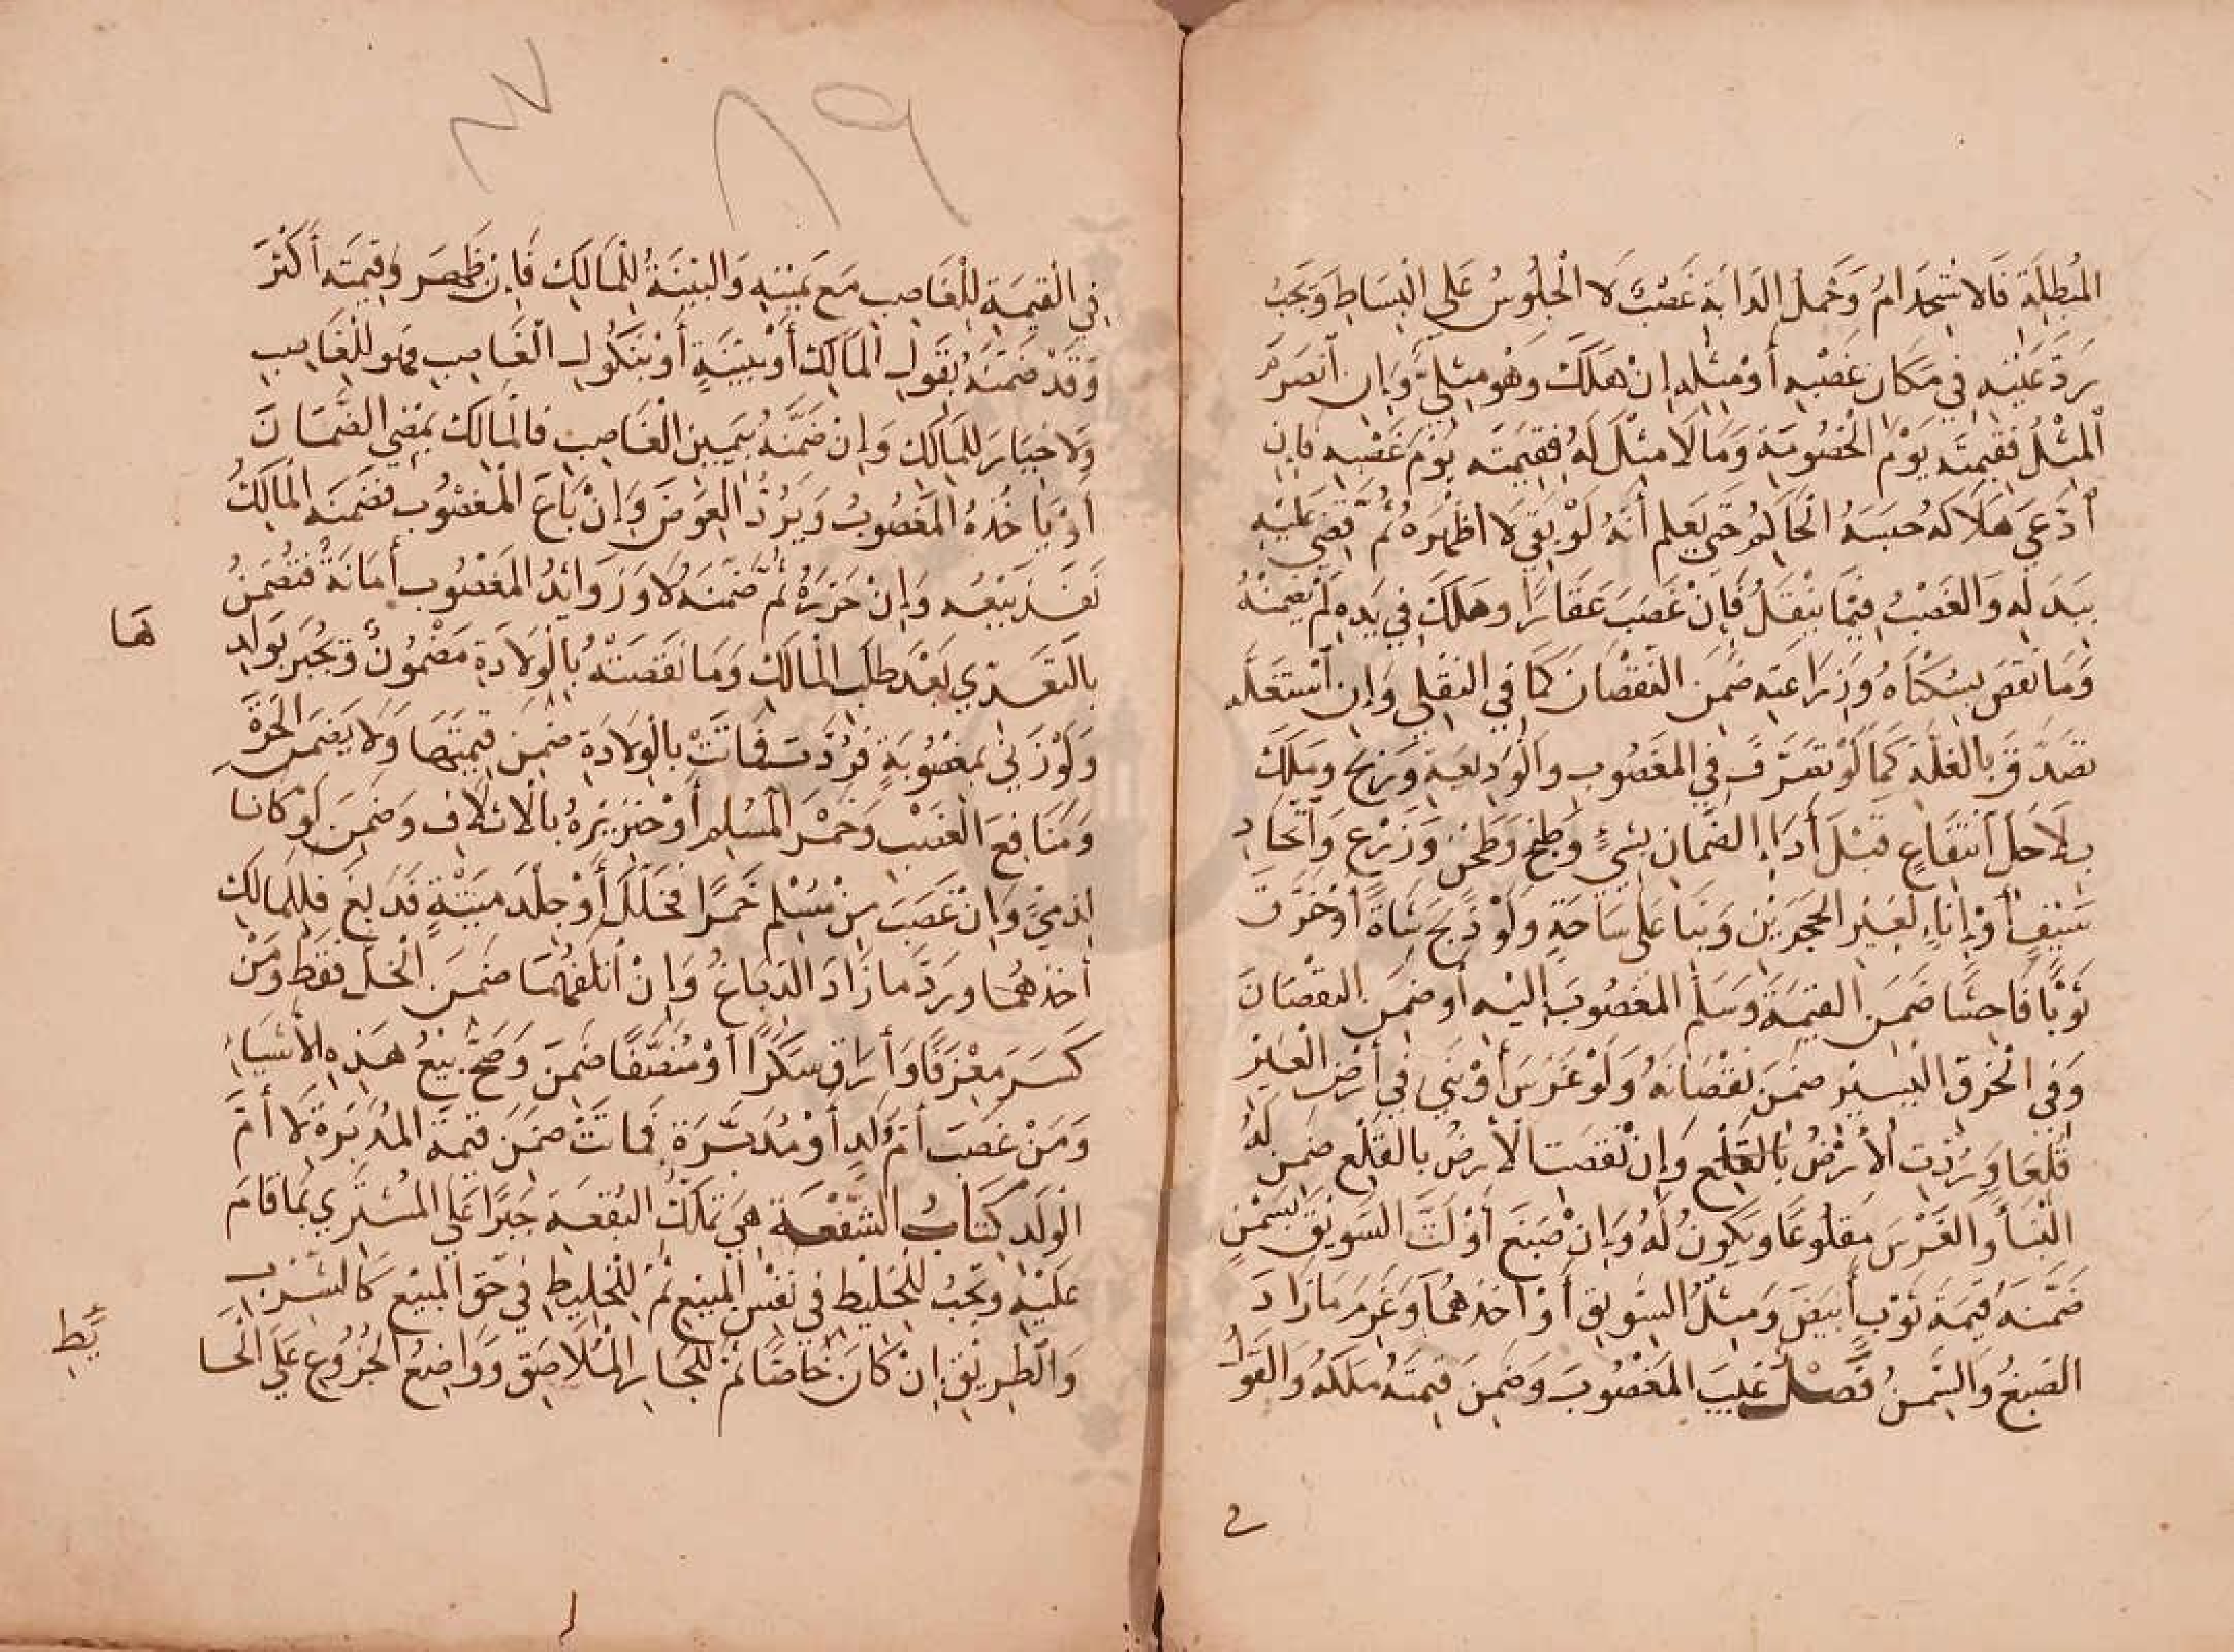 المُبْطِلَةِ فَالاسْتِخْدَامُ وَحَمْلُ الدَابَةِ غَصْبٌ لَا الْجُلُوسُ عَلى الْبِسَاطِ وَيَجِبُ
رَدُّ عَيْنِهِ فِي مَكَانِ غَصْبِهِ أَوْ مِثْلِهِ إِنْ هَلَكَ وَهُوَ مِثْلِيٌّ وَإِن انْصَرَمَ
الْمِثْلُ فَقِيمَتُه يَوْمَ الْخُصُومَةِ وَمَا لَا مِثْلَ لَهُ فَقِيمَتُه يَوْمَ غَصْبِهِ فَإِنِ
ادَّعَى هَلَاكَهُ حَبَسَهُ الْحَاكِمُ حَتى يَعلم أَنَّهُ لَوْ بَقِيَ لَاظْهَرَهُ ثُمَّ قَضَى عَلَيْهِ
بِبَدَلِه وَالغَصْبُ فِيْمَا يُنْقَلُ فَإِنْ غَصَبَ عَقَارًا وهَلَكَ فِي يَدِهِ لَمْ يَضْمَنْهُ
وَمَا نَقَصَ بِسُكْنَاهُ وَزِرَاعَتِه ضَمِنَ النُقْصَانَ كَمَا فِي النَقْلِي وَإِنِ اسْتَغَلَّه
تَصَدَّقَ بِالغَلَّةِ كَمَا لَوْ تَصَرَّفَ فِي المَغْصُوبِ وَالْوَدِيعَةِ وَرَبِحَ وَمَلَكَ
بِلَا حِلِّ انْتِفَاعٍ قَبْلَ أَدَاءِ الضَّمَانِ بِشَيٍّ وَطَبْخٍ وَطَحْنٍ وَزَرْعٍ وَاتِّخَادِ
سَيْفٍ أَوْ إِنَاءٍ لِغَيْرِ الحَجَرَيْنِ وَبِنَا عَلَى سَاحَةٍ وَلَوْ ذَبَحَ شَاةً أَوْ خَرَقَ
ثَوْبًا فَاحِشًا ضَمِنَ القِيْمَةَ وَسَلَّمَ المَغْصُوبَ إِلَيْهِ أَو ضَمِنَ النُقْصَانَ
وَفِي الْخَرْقِ الْيَسِيْرِ ضَمِنَ نُقْصَانَهُ وَلَوْ غَرَسَ أَوْ بَنَى فِي أَرْضِ الْغَيْرِ
قُلِعَا وَرُدَّتِ الأَرْضُ بِالقَلْعِ وَإِنْ نَقَصَتِ الأَرضُ بِالقَلْعِ ضَمِنَ لَهُ
الْبِنَأَ وَالغَرْسَ مَقْلُوعًا وَيَكُونُ لَهُ وَإِنْ صَبَغَ أَوْ لَتَّ السَوِيقَ بِسَمْنٍ
ضَمَّنَهُ قِيْمَةَ ثَوْبٍ أَبْيَضَ وَمِثْلَ السَّوِيقِ أَوْ اخَذَهُمَا وَغَرِمَ مَا زَادَ
الصَبْغُ وَالسَّمْنُ فَصْلٌ غَيَّبَ المَغْصُوبَ وَضَمِنَ قِيمَتَهُ مَلَكَهُ وَالقَوْلُ
في
٨٩
فِي الْقِيْمَةِ لِلْغَاصِبِ مَعَ يَمِيْنِهِ وَالبَيِّنَةُ لِلْمَالِكِ فَإِنْ ظَهَرَ وَقِيمَتُه أَكْثَرُ
وَقَدْ ضَمَّنَهُ بِقَوْلِ المَالِكِ أَوْ بِبَيِّنَةٍ أَوْ بِنُكُولِ الغَاصِبِ فهو لِلْغَاصِبِ
وَلَا خِيَارَ لِلمَالِكِ وَإِنْ ضَمَّنَهُ بِيَمِيْنِ الغَاصِبِ فَالْمَالِكُ يُمْضِي الضَّمَانَ
أَوْ يَاخُذُ المَغْصُوبَ وَيَرُدُّ العِوَضَ وَإِنْ بَاعَ المَغْصُوبَ فَضَمَّنَه الْمَالِكُ
نَفَذَ بَيْعُه وَإِنْ حَرَّرَهُ ثُمَّ ضَمَّنَهُ لَا وَزَوَائِدُ المَغْصُوبِ أَمَانَةٌ فَتُضْمَنُ
بِالتَّعَدِّي بَعْدَ طَلَبِ الْمَالِكِ وَمَا نَقَصَتْهُ بِالْوِلَادَةِ مَضْمُونٌ وَيُجْبَرُ بِوَلَدِ
هَا
وَلَوْ زَنَى بِمَغْصُوبَةٍ فَرُدَّتْ فَمَاتَتْ بِالْوِلَادَةِ ضَمِنَ قِيمَتَهَا وَلَا يَضْمَنُ الحُرَّةَ
وَمَنَافِعَ الْغَصْبِ وَخَمْرَ المُسْلِمِ أَوْ خِنْزِيْرَهُ بِالْاتْلَافِ وَضَمِنَ لَوْ كَانَا
لِذِمِّيٍّ وَإِنْ غَصَبَ مِنْ مُسْلِمٍ خَمْرًا فَخَلَّلَ أَوْ جِلْدَ مَيْتَةٍ فَدَبَغَ فَلِلْمَالِكِ
أَخْذُهُمَا وَرَدُّ مَا زَادَ الدِبَاغُ وَإِنْ أَتْلَفَهُمَا ضَمِنَ الْخَلَّ فَقَطْ وَمَنْ
كَسَرَ مِعْزَفًا وَأَرَاقَ سَكَرًا أَوْ مُنَصَّفًا ضَمِنَ وَصَحَّ بَيْعُ هَذِهِ الأَشْيَاءِ
وَمَنْ غَصَبَ أُمَّ وَلَدٍ أَوْ مُدَبَّرَةٍ فَمَاتَتْ ضَمِنَ قِيْمَةَ المُدَبَّرَةِ لَا أُمِّ
الْوَلَدِ كِتَابُ الشُّفْعَةِ هِيَ تَمَلُّكُ البُقْعَةِ جَبْرًا عَلَى المُشْتَرِي بِمَا قَامَ
عَلَيْهِ وَتَجِبُ لِلْخَلِيْطِ فِي نَفْسِ المَبِيْعِ ثُمَّ لِلْخَلِيْطِ فِي حَقِّ الْمَبِيْعِ كَالشِّرْبِ
وَالطَّرِيْقِ إِنْ كَانَ خَاصًّا ثُمَّ لِلْجَارِ الْمُلَاصِقِ وَوَاضِعُ الجُزُوعِ عَلَى الْحَا
يُطِ